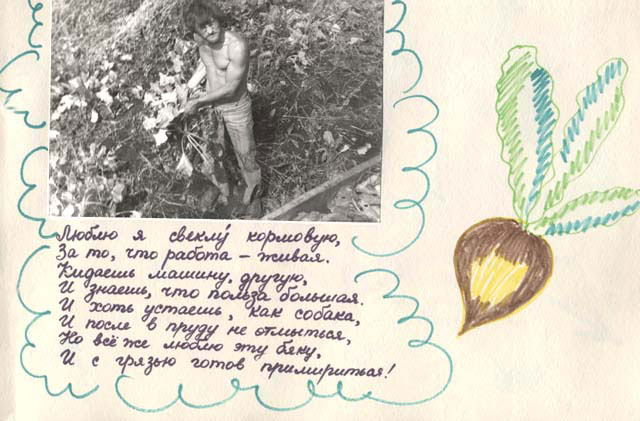 Люблю я свеклу́ кормовую,
За то, что работа – живая.
Кидаешь машину, другую,
И знаешь, что польза большая.
И хоть устаешь, как собака,
И после в пруду не отмыться,
Но всё же люблю эту бяку,
И с грязью готов примириться!